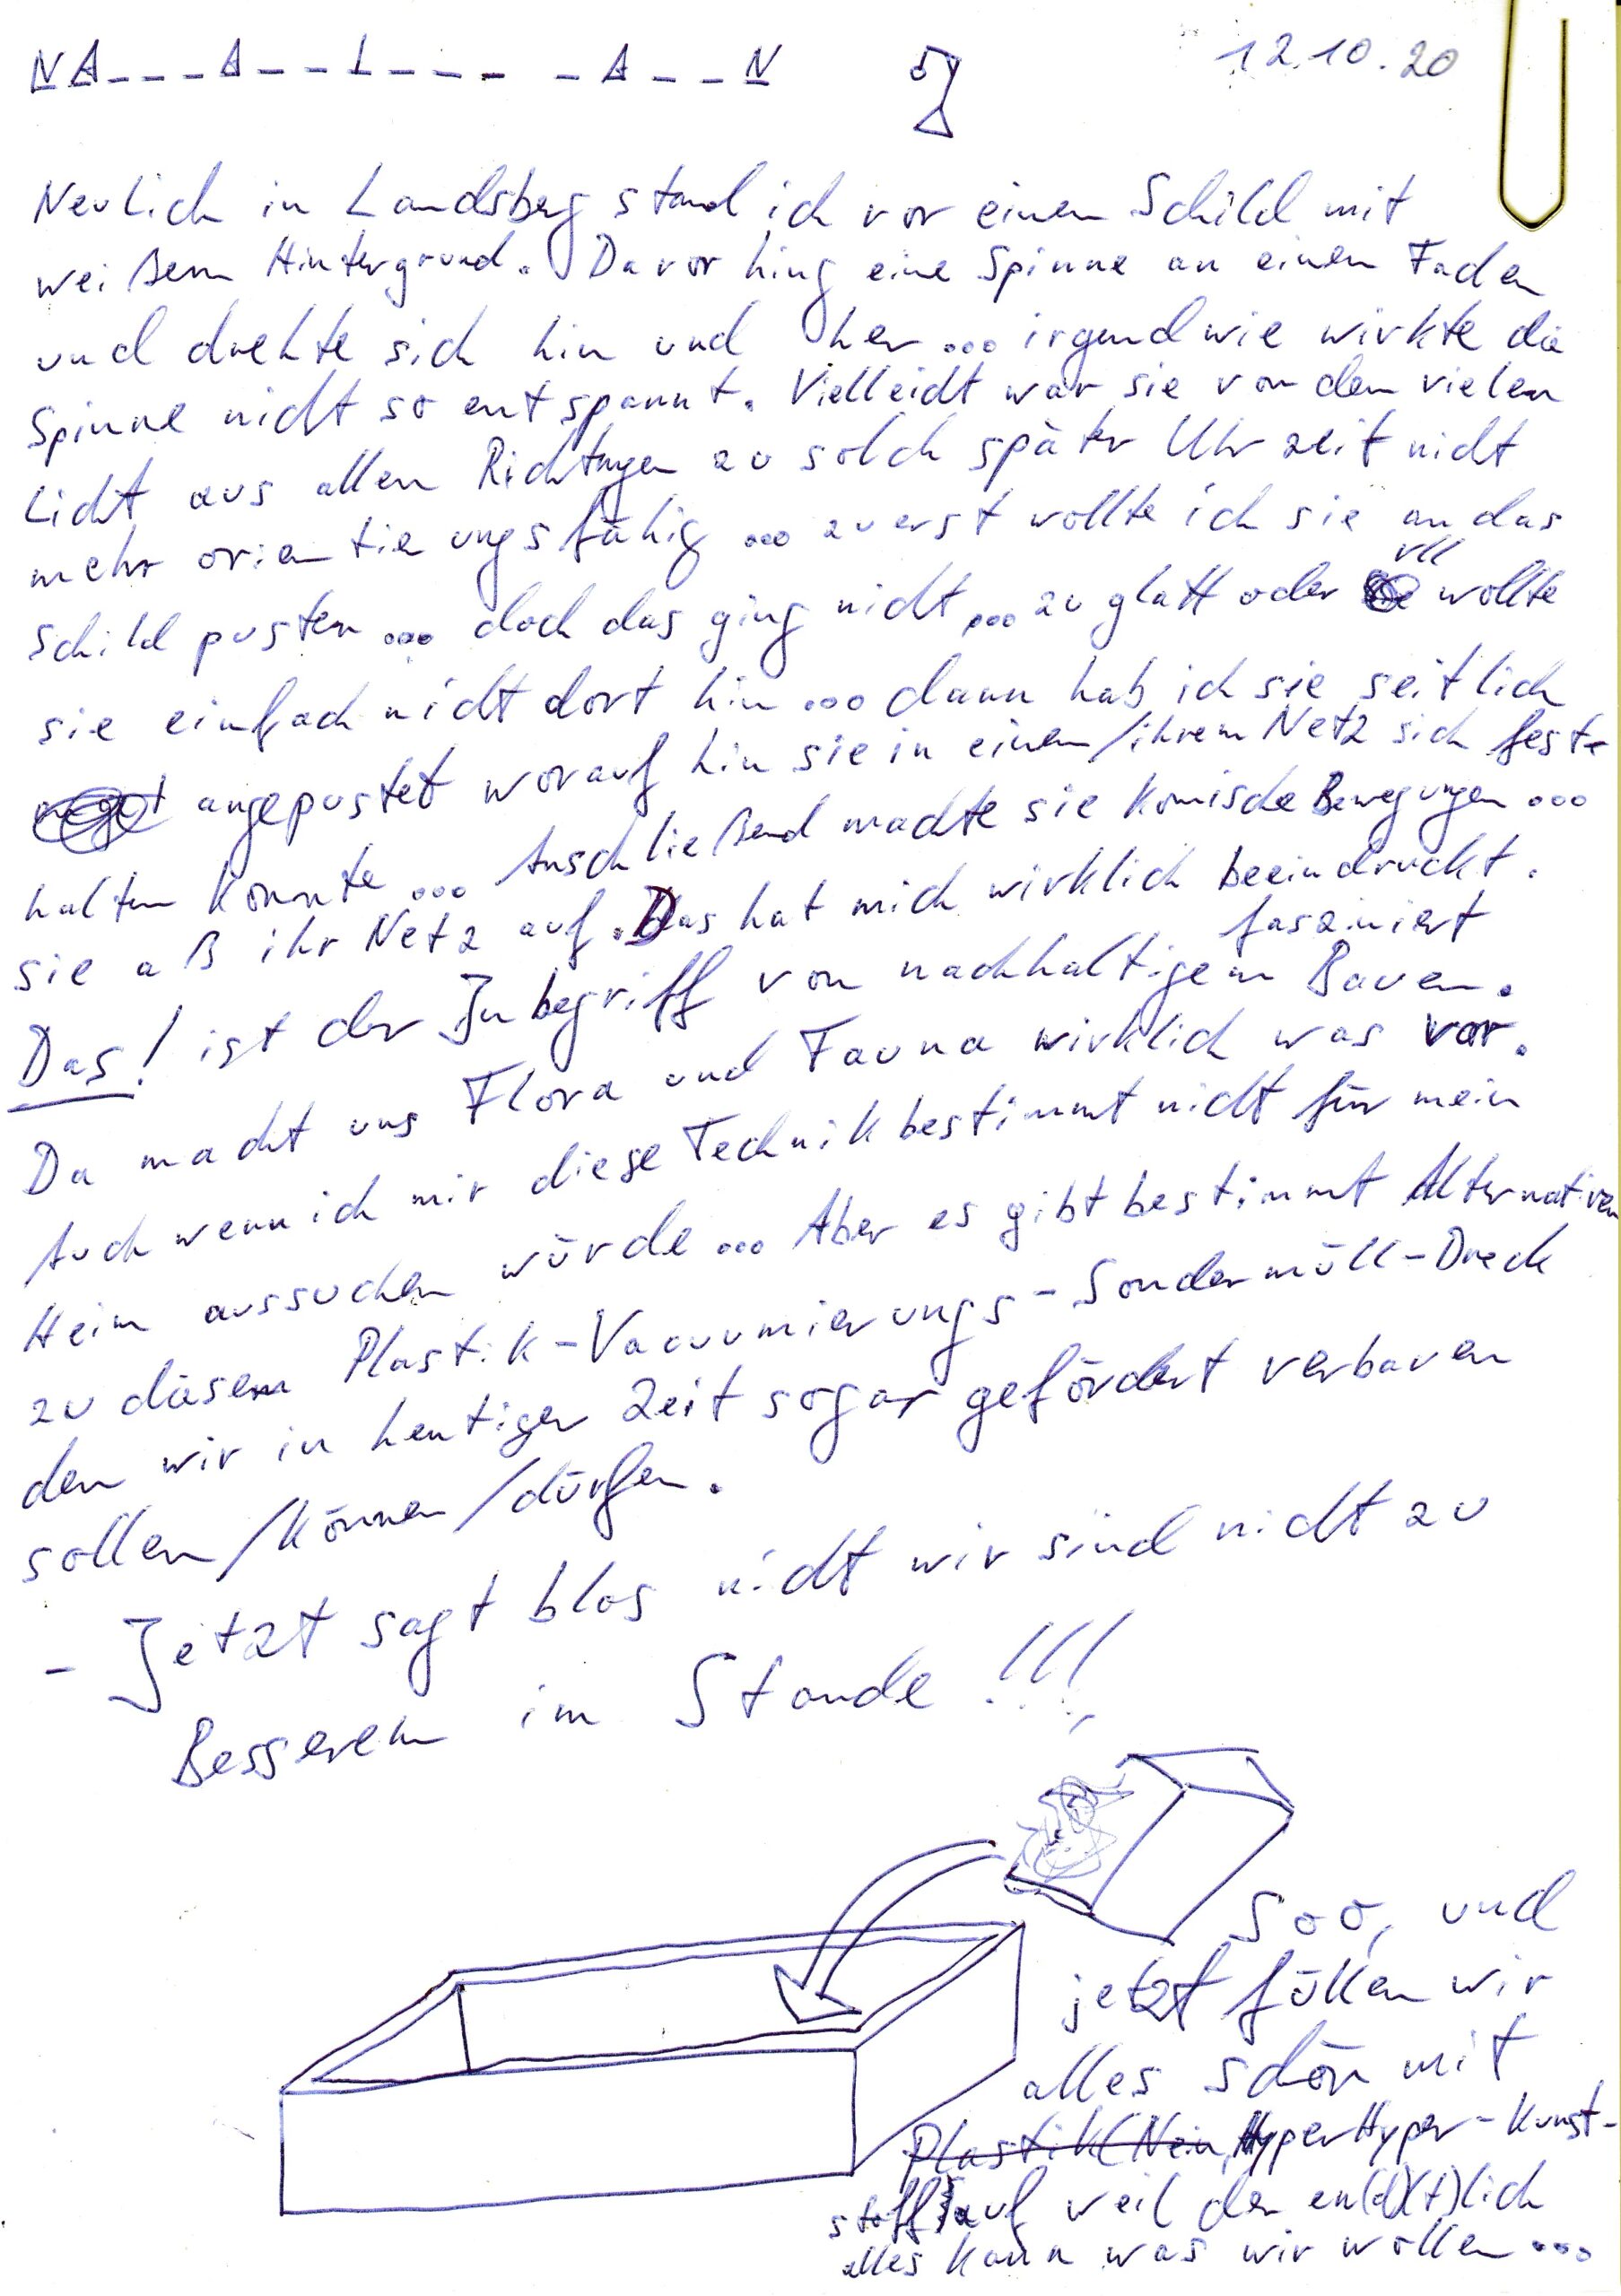 NA___A__L____ _A__N 12.10.20
Neulich in Landsberg stand ich vor einem Schild mit
weißem Hintergrund. Davor hing eine Spinne an einem Faden
und drehte sich hin und her... irgendwie wirkte die
Spinne nicht so entspannt. Vielleicht war sie von dem vielen
Licht aus allen Richtungen zu solch später Uhrzeit nicht
mehr orientierungsfähig ... zuerst wollte ich sie an das
Schild pusten ... doch das ging nicht ... zu glatt oder vll wollte
sie einfach nicht dort hin ... dann hab ich sie seitlich
angepustet worauf hin sie in einem/ihrem Netz sich fest
halten konnte ... Anschließend machte sie komische Bewegungen ...
sie aß ihr Netz auf. Das hat mich wirklich beeindruckt.
fasziniert
Das! ist der Inbegriff von nachhaltigem Bauen.
Da macht uns Flora und Fauna wirklich was vor.
Auch wenn ich mir diese Technik bestimmt nicht für mein
Heim aussuchen würde ... Aber es gibt bestimmt Alternativen
zu diesem Plastik-Vacuumierungs-Sondermüll-Dreck
den wir in heutiger Zeit sogar gefördert verbauen
sollen/können/dürfen.
- Jetzt sagt blos nicht wir sind nicht zu
Besserem im Stande !!!
Soo, und
jetzt füllen wir
alles schön mit
Plastik (Nein, HyperHyper-Kunst-
stoff) auf weil der en(d)(t)lich
alles kann was wir wollen ...